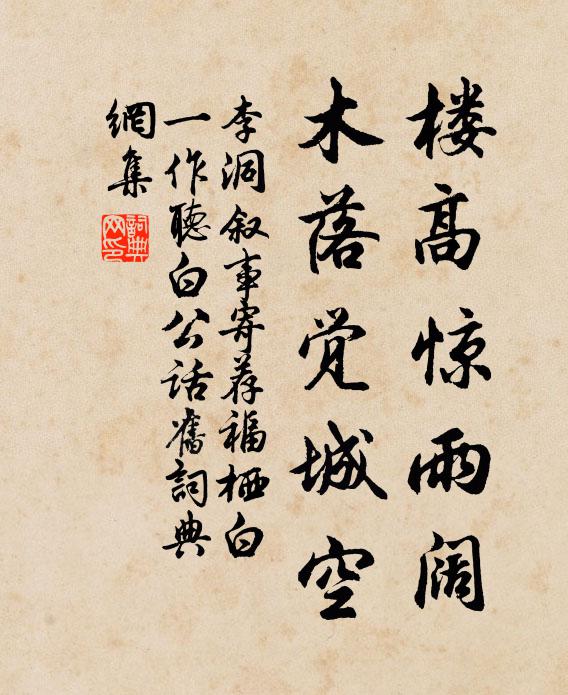 楼高惊雨阔
木落觉城空
李洞叙事寄荐福栖白
一作聽白公话舊詞典
網集
詞典网印